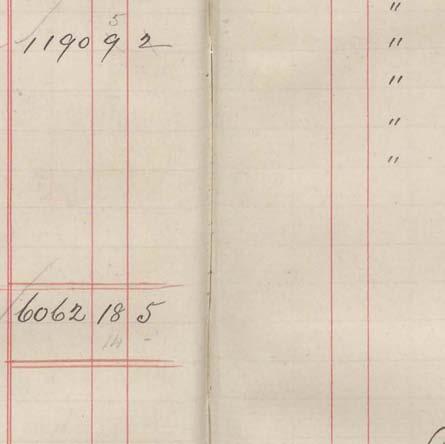 5
1190 9 2
6062 18 5
14 -
"
"
"
"
"